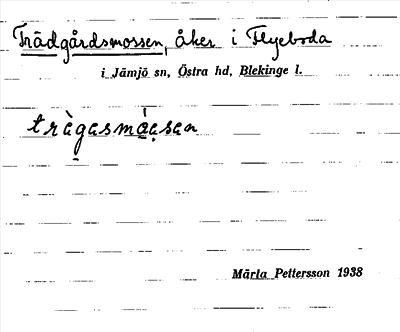 Trädgårdsmossen, åker i Flyeboda
i Jämjö sn, Östra hd, Blekinge l.
tràgasmá̱ạsan
Märta Pettersson 1938